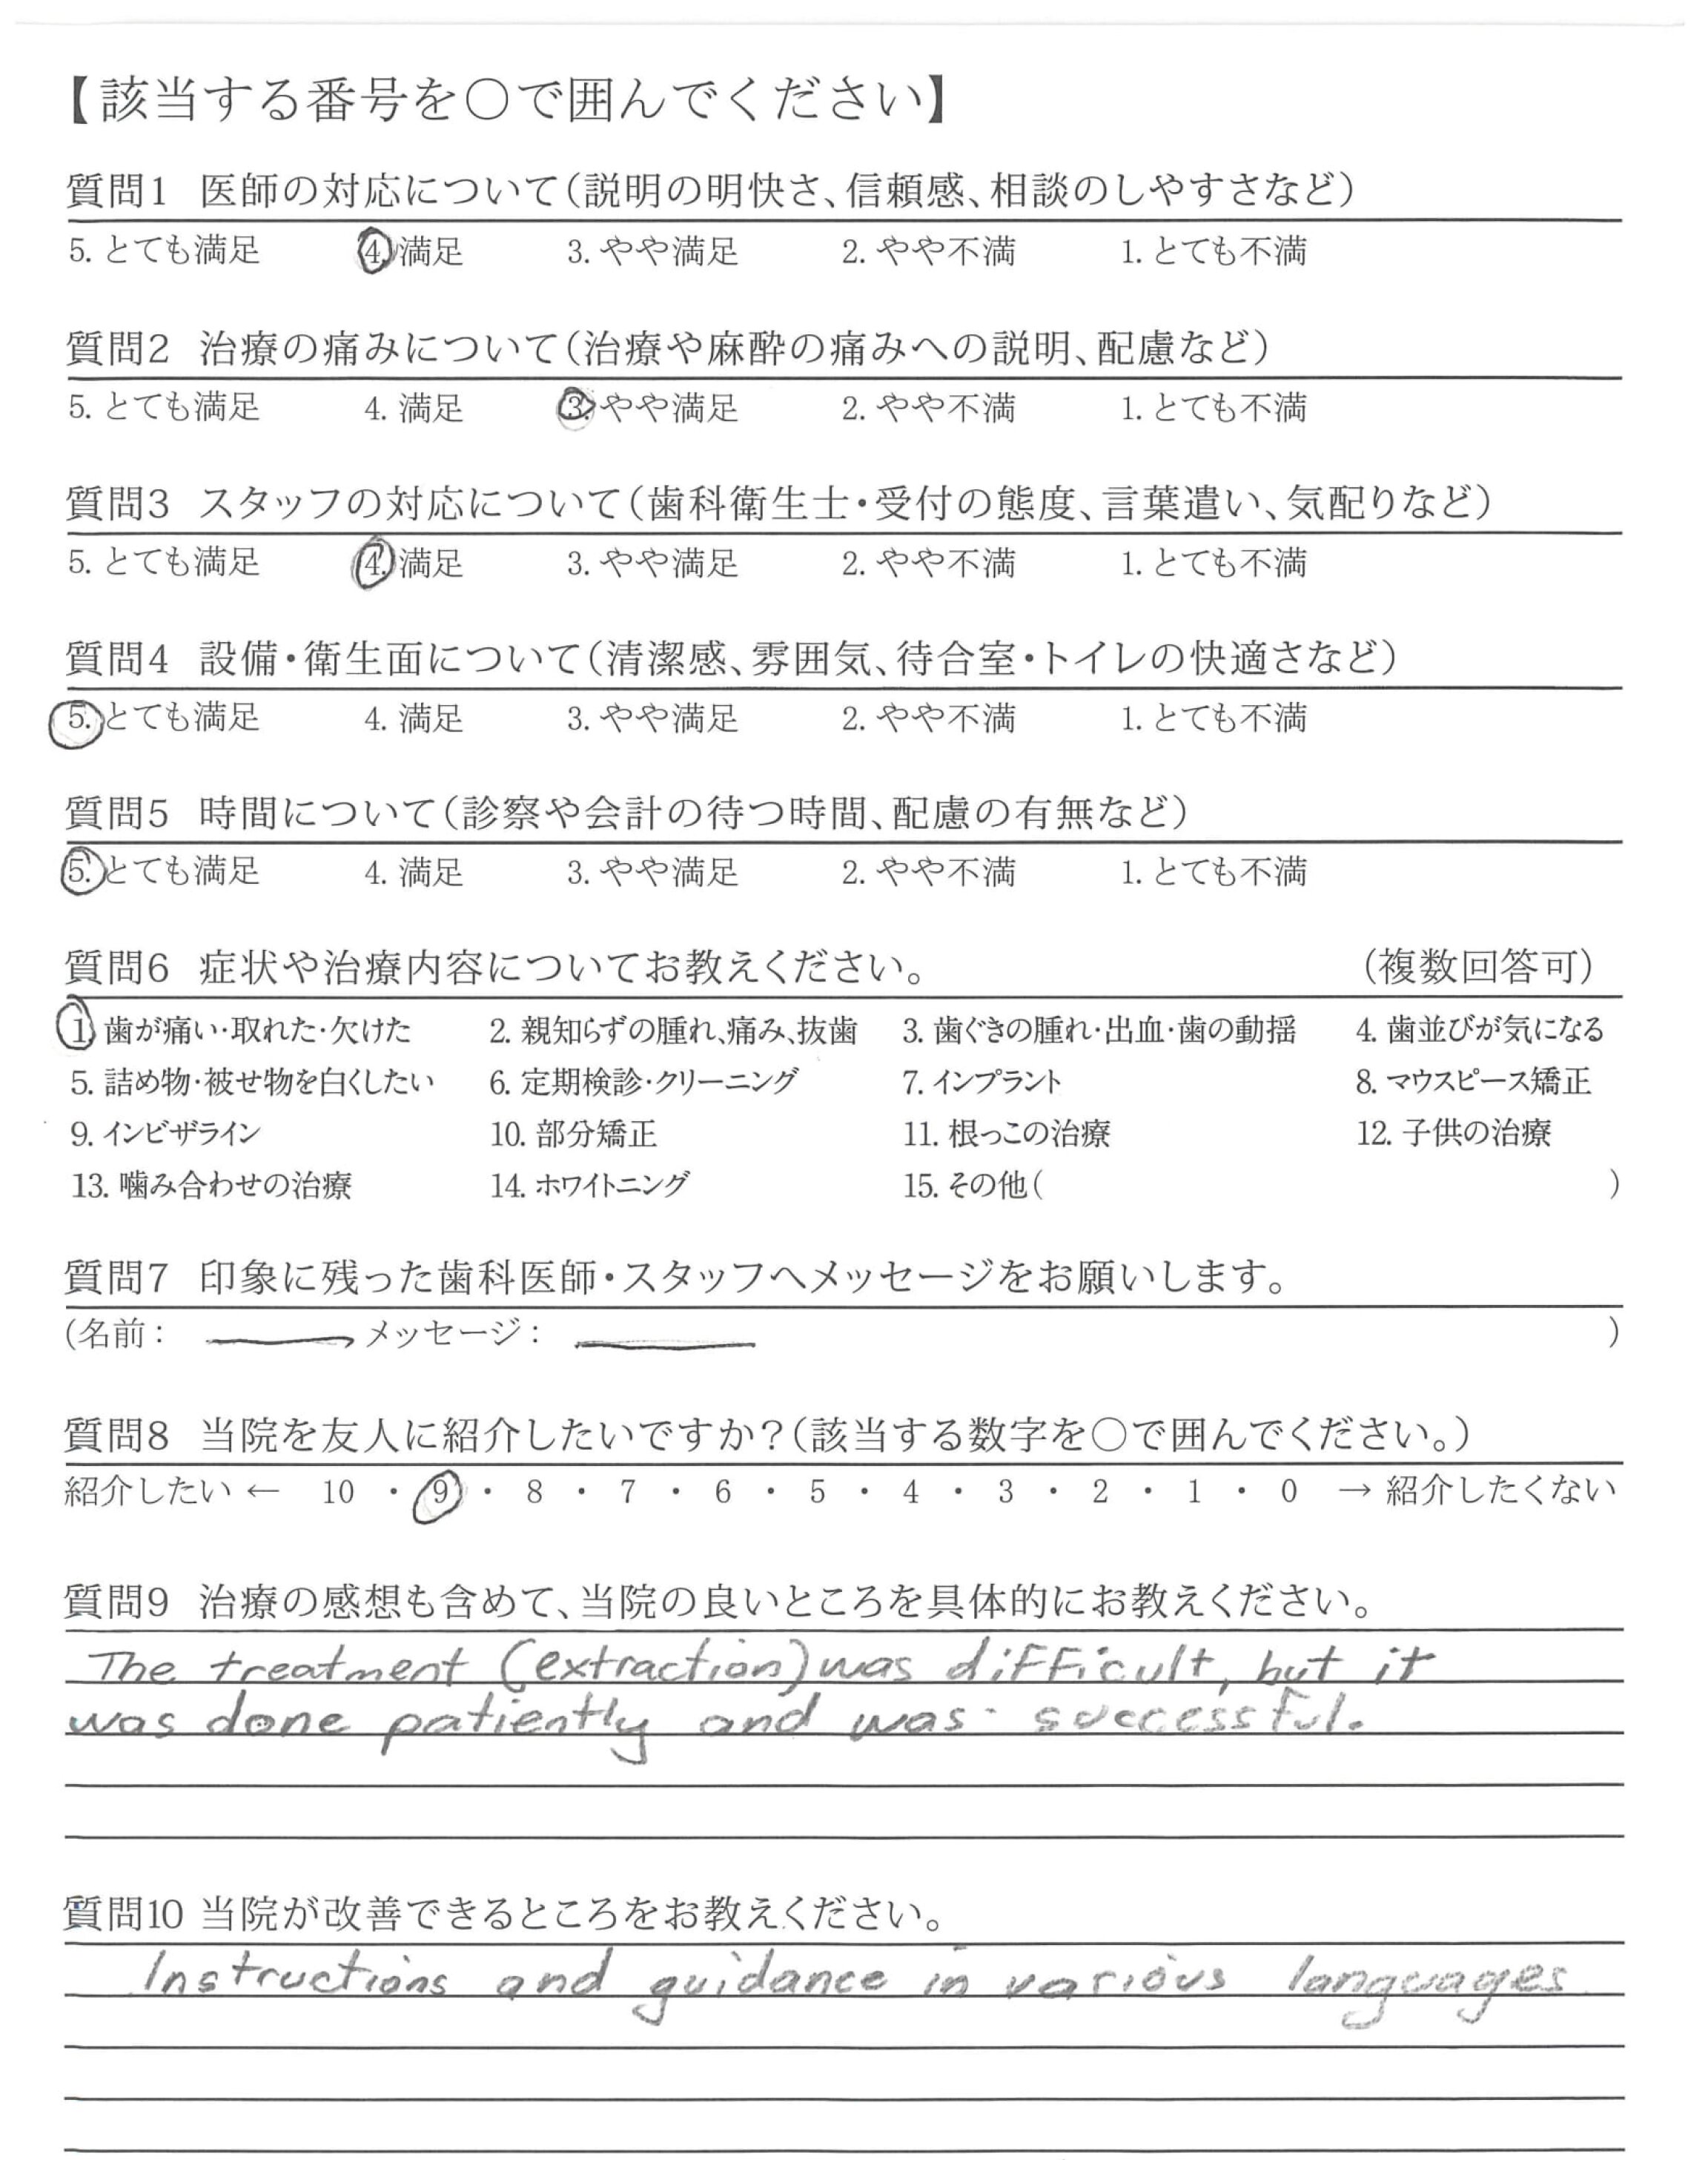 【該当する番号を〇で囲んでください】
質問1 医師の対応について(説明の明快さ、信頼感、相談のしやすさなど)
5. とても満足 4. 満足 3. やや満足 2. やや不満 1. とても不満
質問2 治療の痛みについて(治療や麻酔の痛みへの説明、配慮など)
5. とても満足 4. 満足 3. やや満足 2. やや不満 1. とても不満
質問3 スタッフの対応について(歯科衛生士・受付の態度、言葉遣い、気配りなど)
5. とても満足 4. 満足 3. やや満足 2. やや不満 1. とても不満
質問4 設備・衛生面について(清潔感、雰囲気、待合室・トイレの快適さなど)
5. とても満足 4. 満足 3. やや満足 2. やや不満 1. とても不満
質問5 時間について(診察や会計の待つ時間、配慮の有無など)
5. とても満足 4. 満足 3. やや満足 2. やや不満 1. とても不満
質問6 症状や治療内容についてお教えください。 (複数回答可)
1. 歯が痛い・取れた・欠けた 2. 親知らずの腫れ、痛み、抜歯 3. 歯ぐきの腫れ・出血・歯の動揺 4. 歯並びが気になる
5. 詰め物・被せ物を白くしたい 6. 定期検診・クリーニング 7. インプラント 8. マウスピース矯正
9. インビザライン 10. 部分矯正 11. 根っこの治療 12. 子供の治療
13. 噛み合わせの治療 14. ホワイトニング 15. その他( )
質問7 印象に残った歯科医師・スタッフへメッセージをお願いします。
(名前: メッセージ: )
質問8 当院を友人に紹介したいですか?(該当する数字を〇で囲んでください。)
紹介したい ← 10 ・ 9 ・ 8 ・ 7 ・ 6 ・ 5 ・ 4 ・ 3 ・ 2 ・ 1 ・ 0 → 紹介したくない
質問9 治療の感想も含めて、当院の良いところを具体的にお教えください。
The treatment (extraction) was difficult, but it
was done patiently and was successful.
質問10 当院が改善できるところをお教えください。
Instructions and guidance in various languages